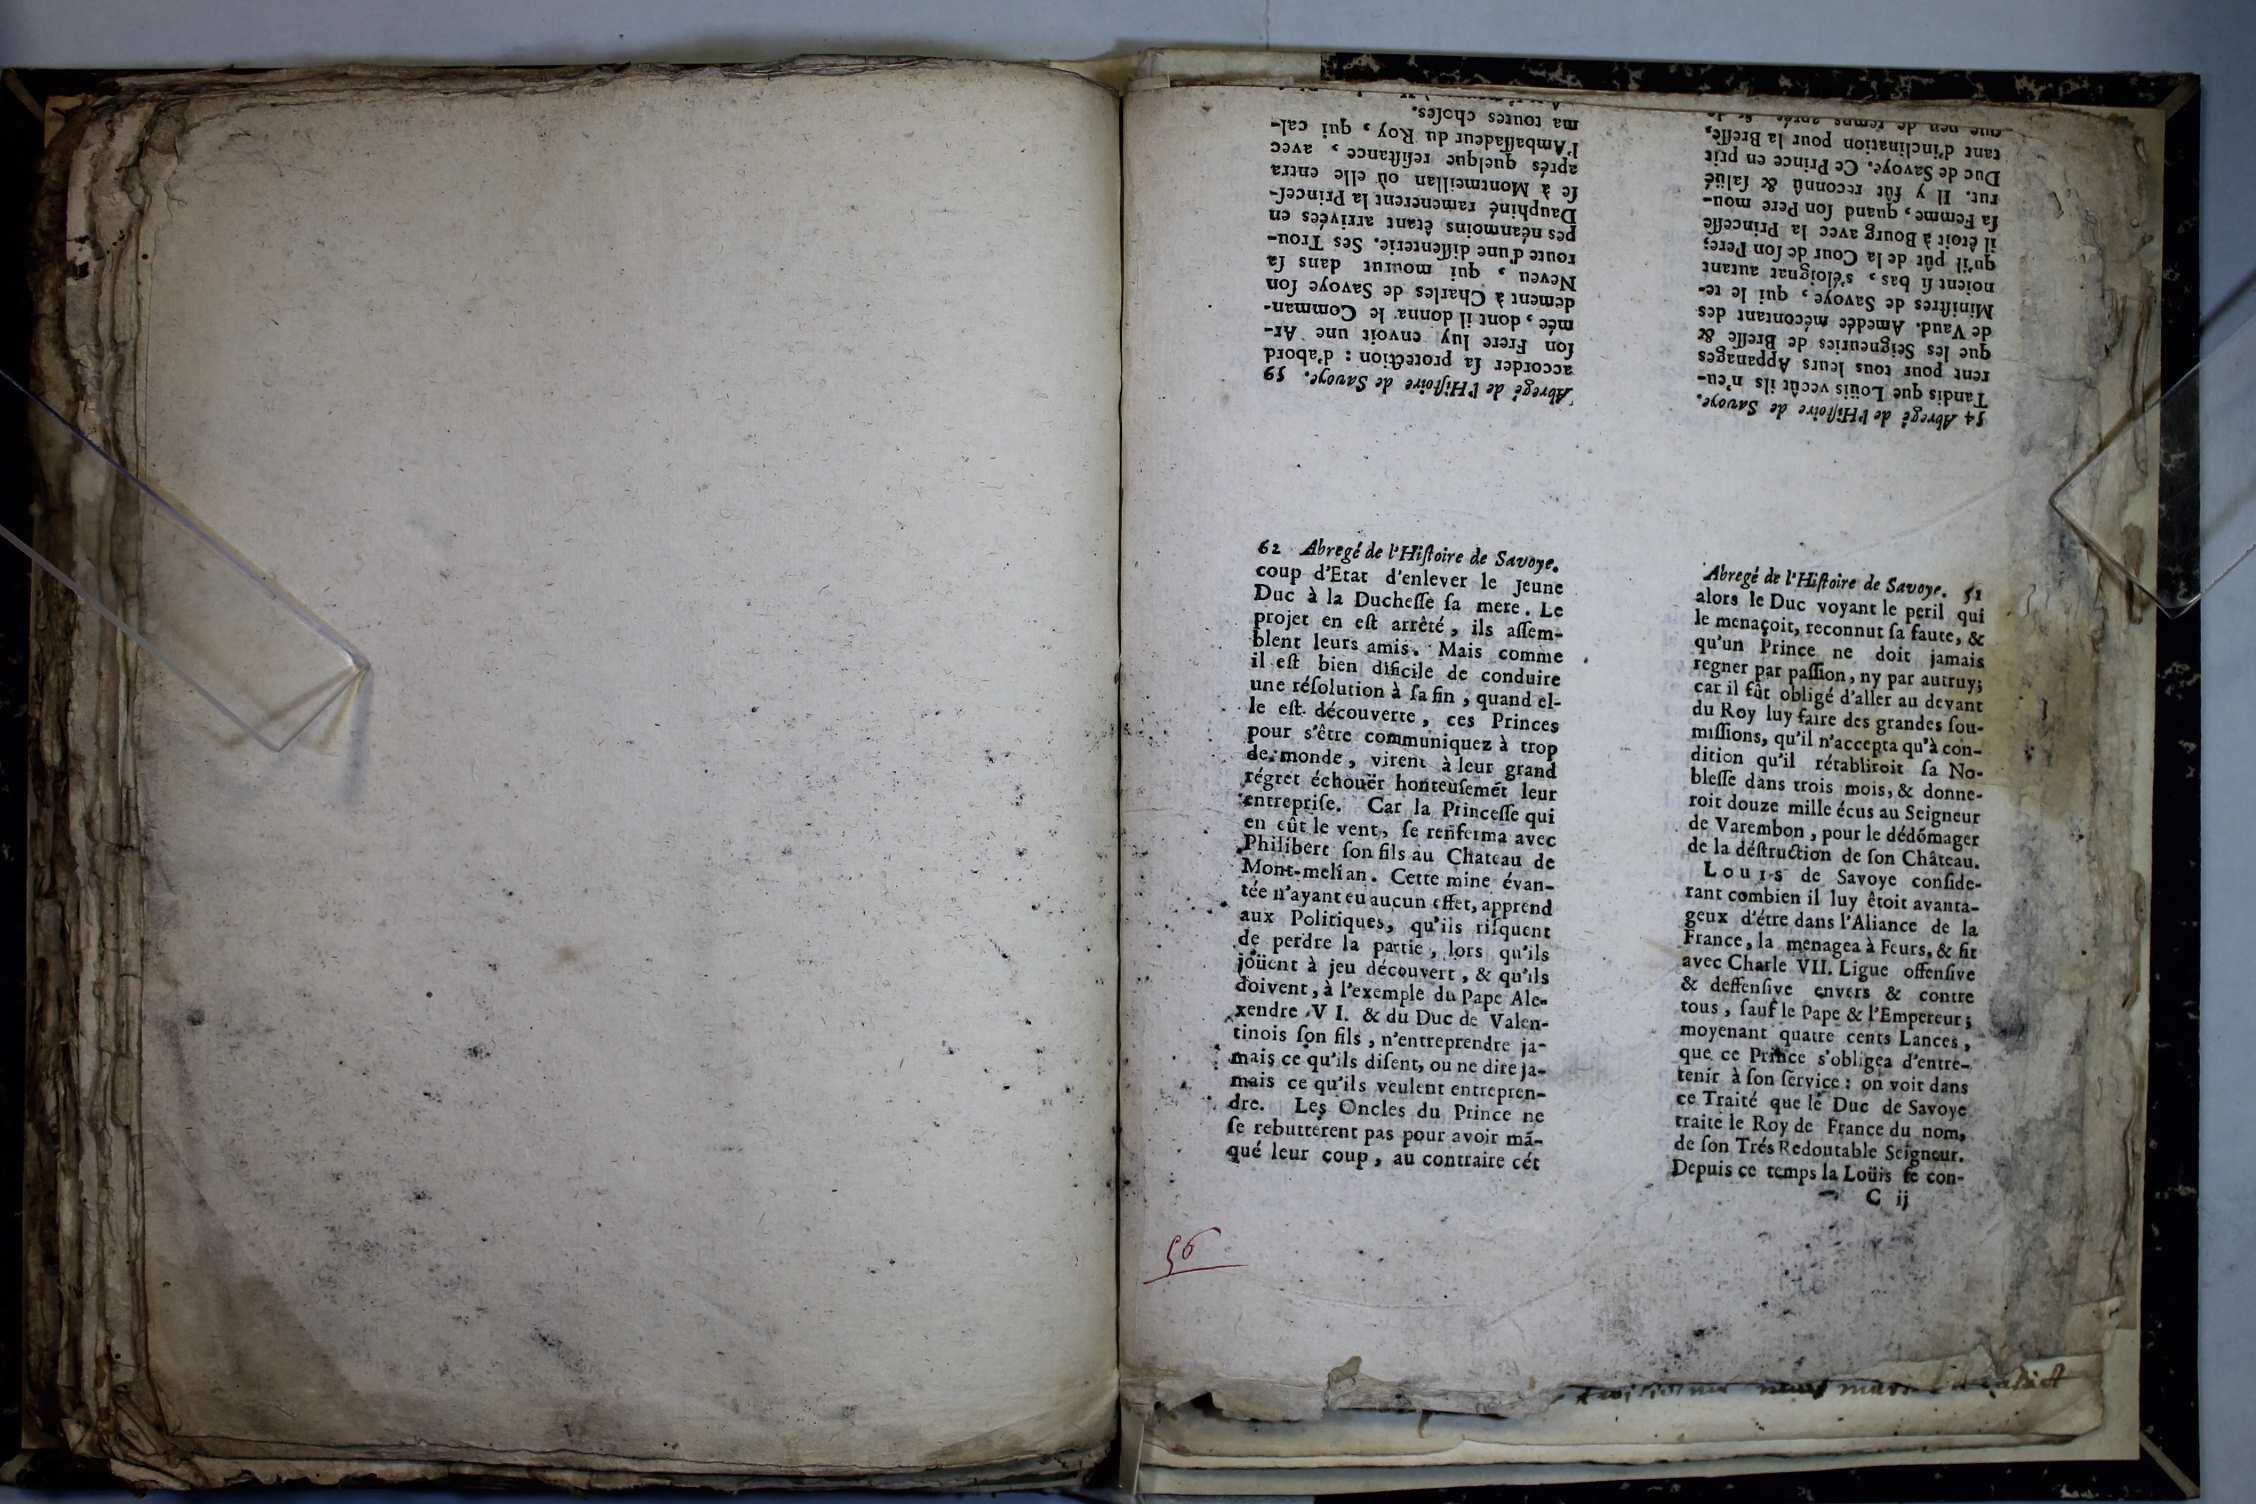 62 Abregé de l'Hiſtoire de Savoye.
coup d'Etat d'enlever le jeune
Duc à la Ducheſſe ſa mere. Le
projet en eſt arrêté, ils aſſem-
blent leurs amis. Mais comme
il eſt bien dificile de conduire
une réſolution à ſa fin, quand el-
le eſt découverte, ces Princes
pour s'être communiquez à trop
de monde, virent à leur grand
régret échouër honteuſemét leur
entrepriſe. Car la Princeſſe qui
en eût le vent, ſe renferma avec
Philibert ſon fils au Chateau de
Mont-melian. Cette mine évan-
tée n'ayant eu aucun effet, apprend
aux Politiques, qu'ils riſquent
de perdre la partie, lors qu'ils
joüent à jeu découvert, & qu'ils
doivent, à l'exemple du Pape Ale-
xendre VI. & du Duc de Valen-
tinois ſon fils, n'entreprendre ja-
mais ce qu'ils diſent, ou ne dire ja-
mais ce qu'ils veulent entrepren-
dre. Les Oncles du Prince ne
ſe rebutterent pas pour avoir mã-
qué leur coup, au contraire cét
Abregé de l'Hiſtoire de Savoye. 51
alors le Duc voyant le peril qui
le menaçoit, reconnut ſa faute, &
qu'un Prince ne doit jamais
regner par paſſion, ny par autruy;
car il fût obligé d'aller au devant
du Roy luy faire des grandes ſou-
miſſions, qu'il n'accepta qu'à con-
dition qu'il rétabliroit ſa No-
bleſſe dans trois mois, & donne-
roit douze mille écus au Seigneur
de Varembon, pour le dédõmager
de la déſtruction de ſon Château.
Louis de Savoye conſide-
rant combien il luy êtoit avanta-
geux d'étre dans l'Aliance de la
France, la menagea à Feurs, & fit
avec Charle VII. Ligue offenſive
& deffenſive envers & contre
tous, ſauf le Pape & l'Empereur;
moyenant quatre cents Lances,
que ce Prince s'obligea d'entre-
tenir à ſon ſervice: on voit dans
ce Traité que le Duc de Savoye
traite le Roy de France du nom,
de ſon Trés Redoutable Seigneur.
Depuis ce temps la Loüis ſe con-
C ij
54 Abregé de l'Hiſtoire de Savoye.
Tandis que Loüis vecût ils n'eu-
rent pour tous leurs Appanages
que les Seigneuries de Breſſe &
de Vaud. Amedée mécontant des
Miniſtres de Savoye, qui le te-
noient ſi bas, s'éloignat autant
qu'il pût de la Cour de ſon Pere;
il êtoit à Bourg avec la Princeſſe
ſa Femme, quand ſon Pere mou-
rut. Il y fût reconnû & ſalüé
Duc de Savoye. Ce Prince en prit
tant d'inclination pour la Breſſe,
que peu de temps aprés
Abregé de l'Hiſtoire de Savoye. 59
accorder ſa protection: d'abord
ſon Frere luy envoit une Ar-
mée, dont il donna le Comman-
dement à Charles de Savoye ſon
Neveu, qui mourut dans ſa
route d'une diſſenterie. Ses Trou-
pes néanmoins êtant arrivées en
Dauphiné ramenerent la Princeſ-
ſe à Montmeillan où elle entra
aprés quelque reſiſtance, avec
l'Ambaſſadeur du Roy, qui cal-
ma toutes choſes.
56